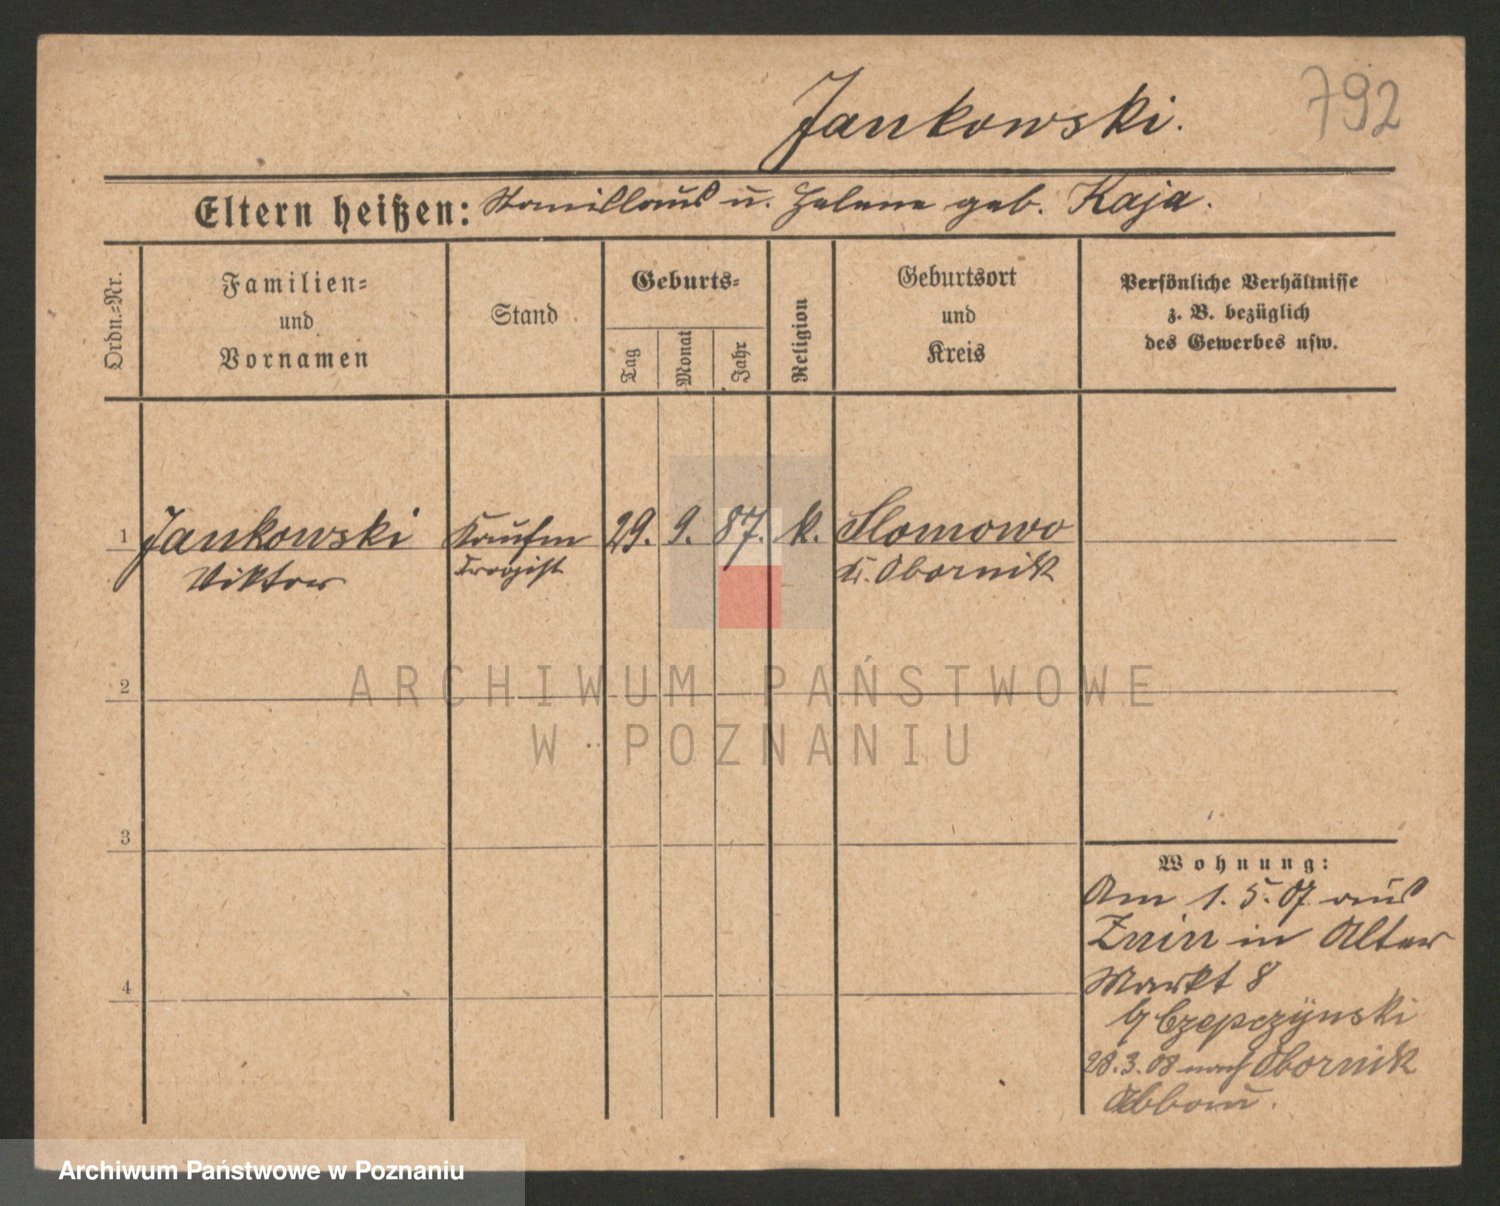 792
Jankowski.
Eltern heißen: Stanislaus u. Helene geb. Kaja.
Ordn.-Nr.
Familien-
und
Vornamen
Stand
Geburts-
Tag
Monat
Jahr
Religion
Geburtsort
und
Kreis
Persönliche Verhältnisse
z. B. bezüglich
des Gewerbes usw.
1 Jankowski Kaufm 29. 9. 87. k. Slomowo
Viktor Drogist Kr. Obornik
2
ARCHIWUM PAŃSTWOWE
W POZNANIU
3
Wohnung:
Am 1. 5. 07 aus
Znin in Alter
Markt 8
b/ Czepczÿnski
28. 3. 08 nach Obornik
Abbau.
4
Archiwum Państwowe w Poznaniu